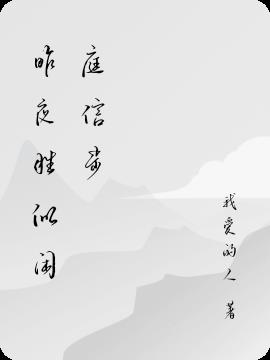 昨夜胜似闲
庭信步
我爱的人 著